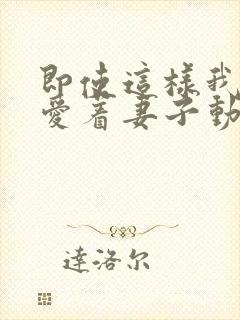 即使這樣我
愛着妻子動
達洛尔